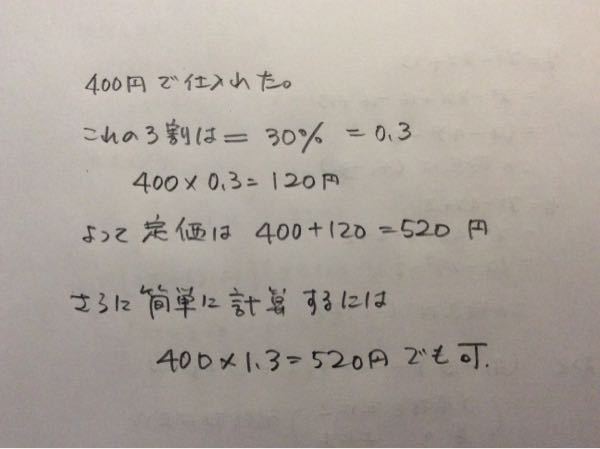 400円で仕入れた。
これの3割は= 30% = 0.3
400×0.3=120円
よって定価は 400+120=520円
さらに簡単に計算するには
400×1.3=520円でも可.